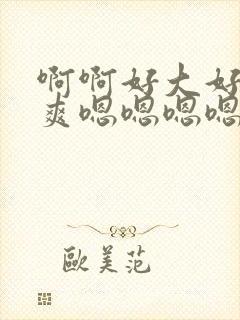 啊啊好大好
爽嗯嗯嗯嗯
歐美范